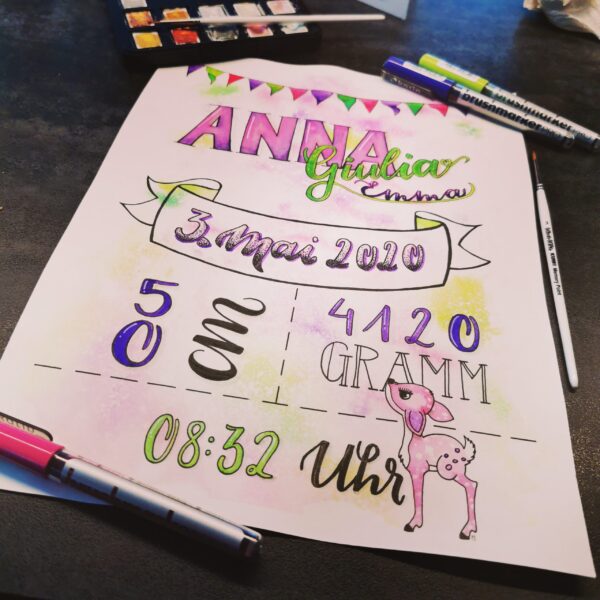 ANNA
Giulia
Emma
3. Mai 2020
50 cm
4120
GRAMM
08:32 Uhr
brushmarker
brushmarker